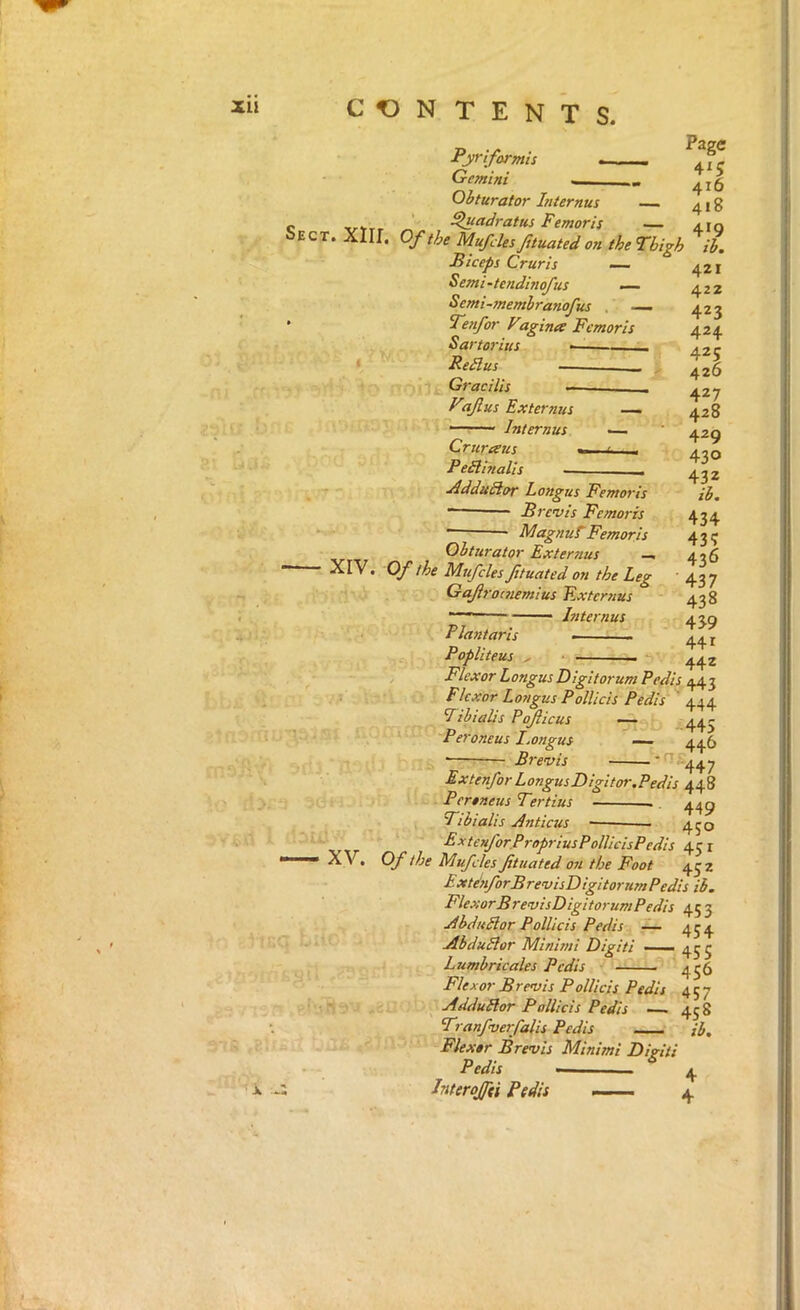 xii CONTENTS.
Page
Pyriformis —— 415
Gemini —— 416
Obturator Internus — 418
Quadratus Femoris — 419
SECT. XIII. Of the Muſcles ſituated on the Thigh ib.
Biceps Cruris — 421
Semi-tendinoſus — 422
Semi-membranoſus — 423
Tenſor Vaginæ Femoris 424
Sartorius —— 425
Rectus —— 426
Gracilis —— 427
Vaſtus Externus — 428
—— Internus — 429
Cruræus —— 430
Pectinalis —— 432
Adductor Longus Femoris ib.
—— Brevis Femoris 434
—— Magnus Femoris 435
Obturator Externus — 436
—— XIV. Of the Muſcles ſituated on the Leg 437
Gaſtrocnemius Externus 438
—— Internus 439
Plantaris —— 441
Popliteus —— 442
Flexor Longus Digitorum Pedis 443
Flexor Longus Pollicis Pedis 444
Tibialis Poſticus — 445
Peroneus Longus — 446
—— Brevis —— 447
Extenſor Longus Digitor. Pedis 448
Peroneus Tertius —— 449
Tibialis Anticus —— 450
Extenſor Proprius Pollicis Pedis 451
—— XV. Of the Muſcles ſituated on the Foot 452
Extenſor Brevis Digitorum Pedis ib.
Flexor Brevis Digitorum Pedis 453
Abductor Pollicis Pedis — 454
Abductor Minimi Digiti —— 455
Lumbricales Pedis —— 456
Flexor Brevis Pollicis Pedis 457
Adductor Pollicis Pedis — 458
Tranſverſalis Pedis —— ib.
Flexor Brevis Minimi Digiti
Pedis —— 4
Interoſſei Pedis —— 4